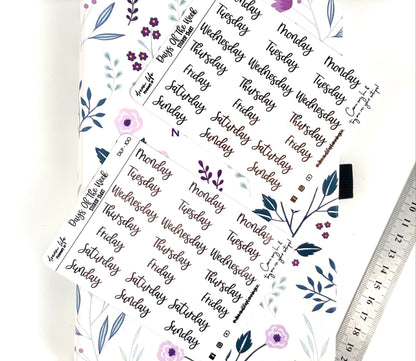 Days Of The Week
STICKER SHEET
Monday
Tuesday
Wednesday
Thursday
Friday
Saturday
Sunday
Monday
Tuesday
Wednesday
Thursday
Friday
Saturday
Sunday
Monday
Tuesday
Wednesday
Thursday
Friday
Saturday
Sunday
DLP-100
Days Of The Week
STICKER SHEET
Monday
Tuesday
Wednesday
Thursday
Friday
Saturday
Sunday
Monday
Tuesday
Wednesday
Thursday
Friday
Saturday
Sunday
Monday
Tuesday
Wednesday
Thursday
Friday
Saturday
Sunday
14
15
16
17
18
19